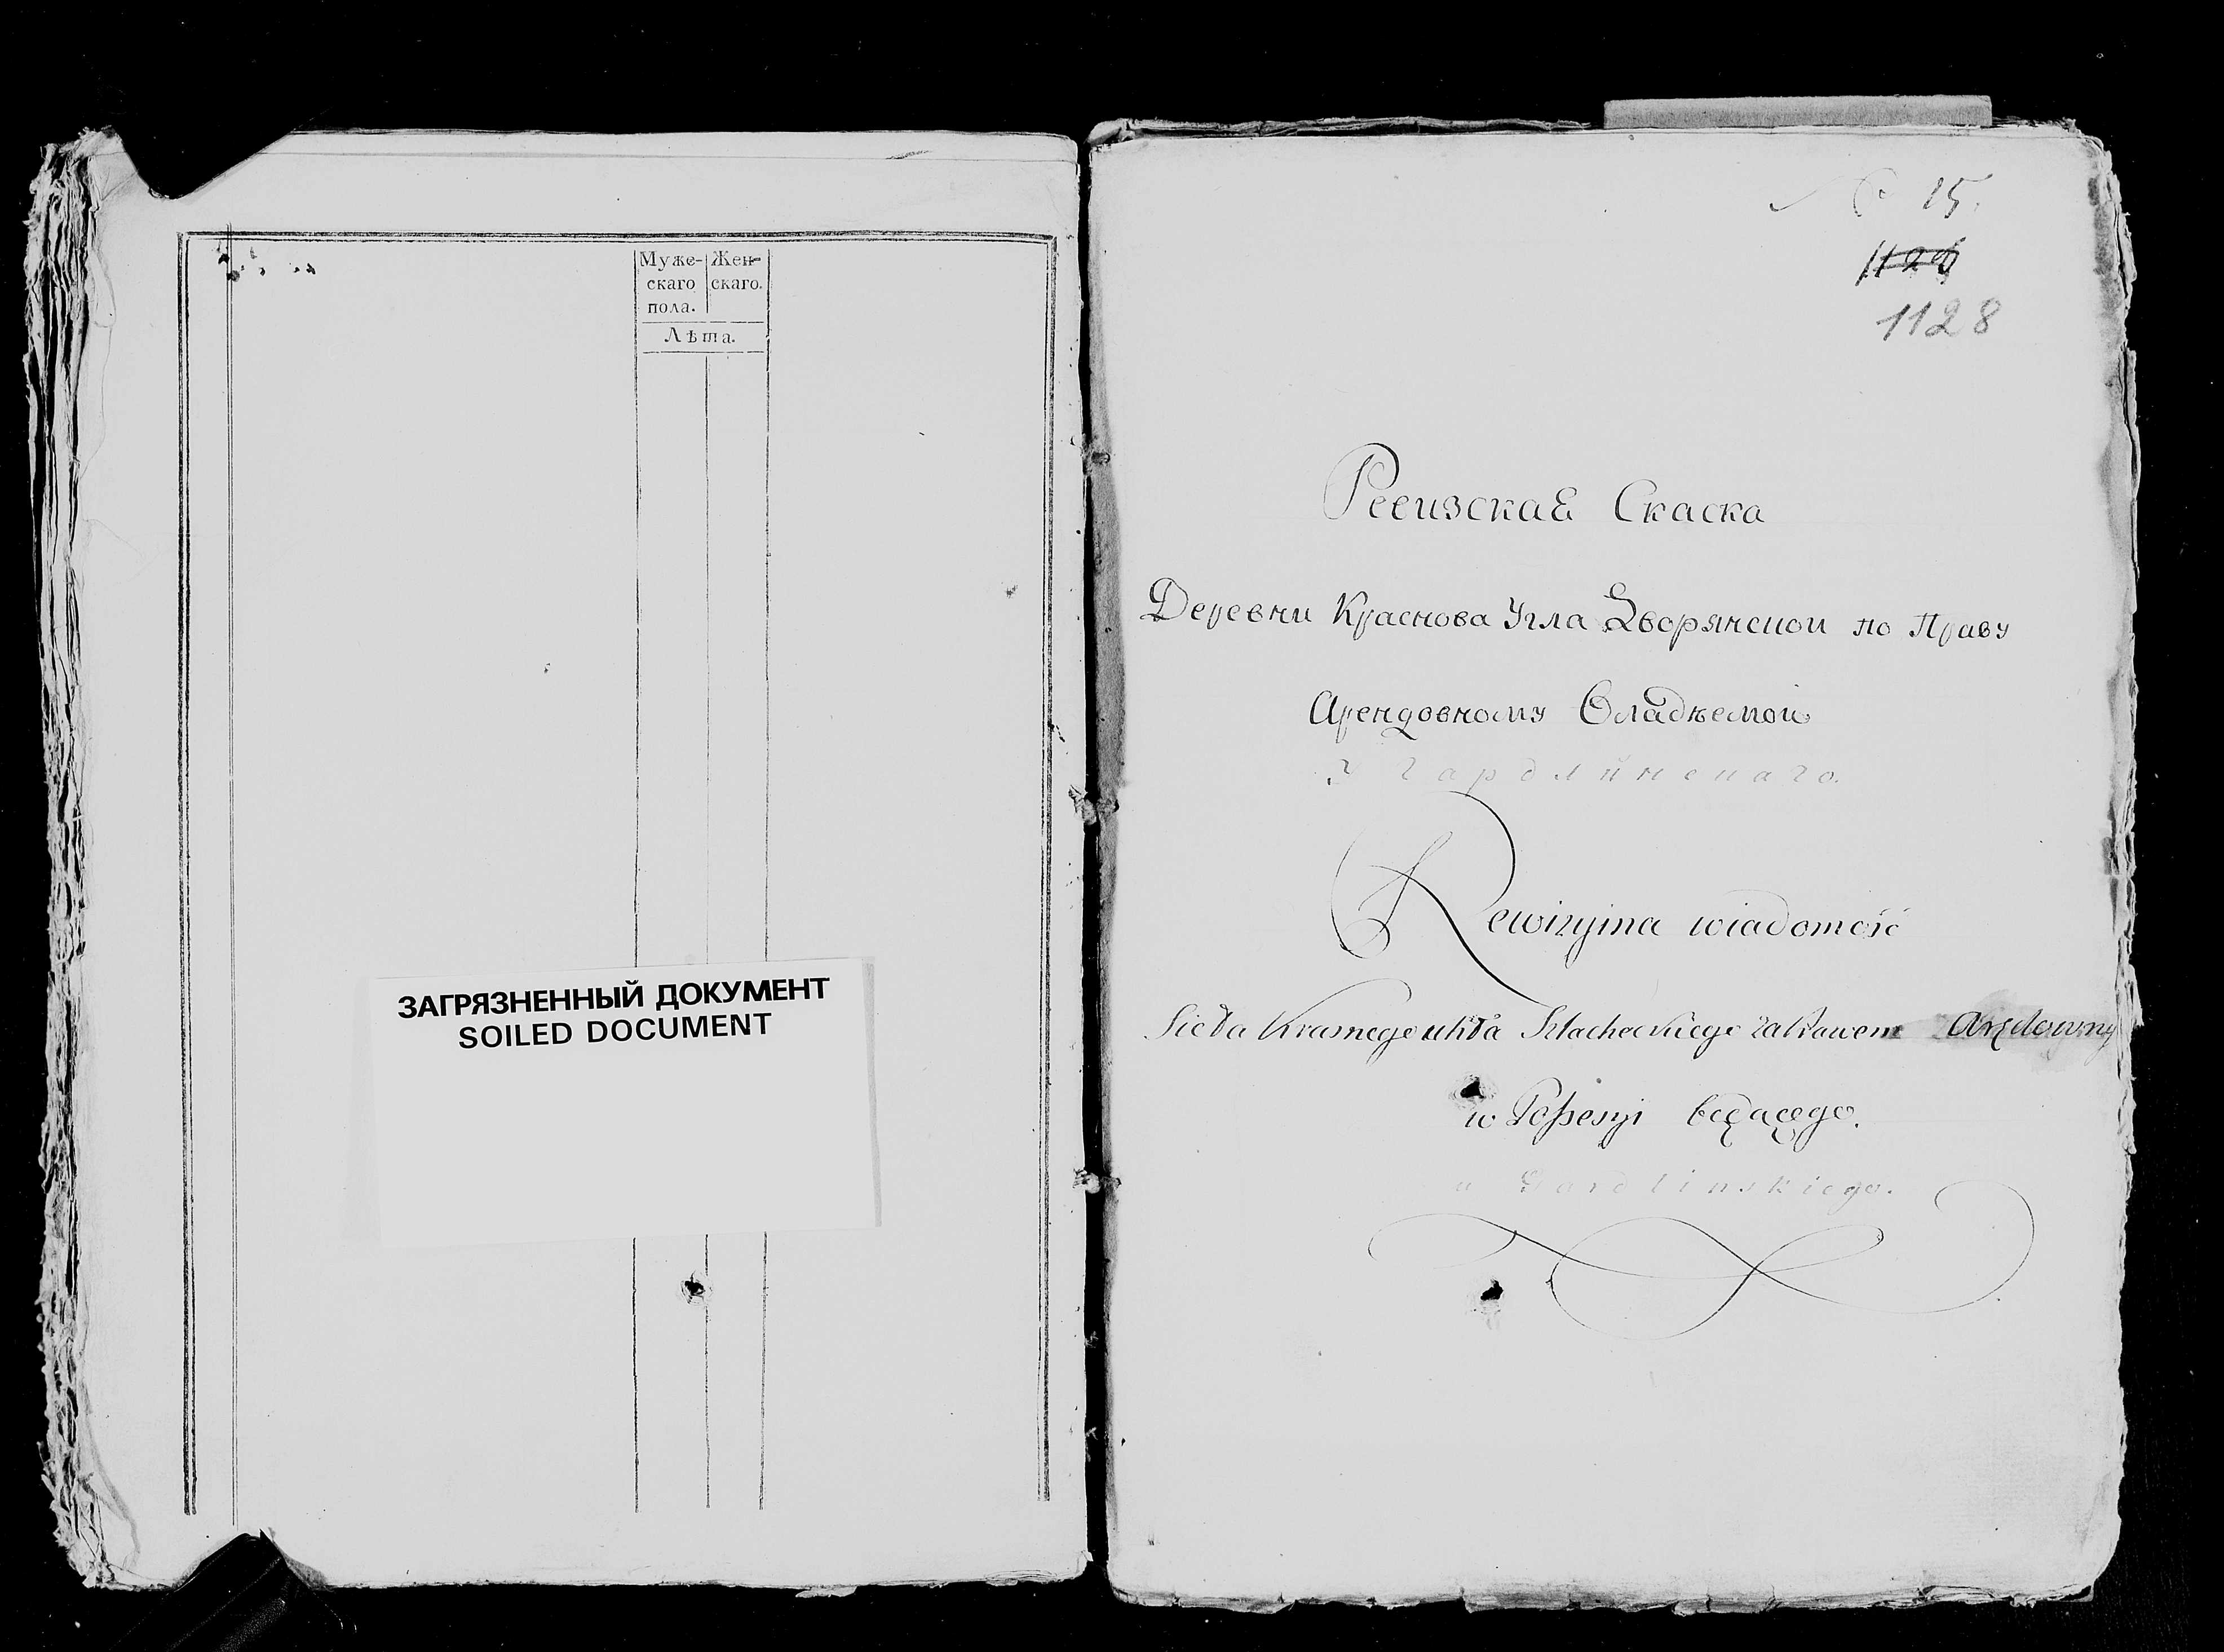 Муже- Жен-
скаго скаго.
пола.
Лѣта.
ЗАГРЯЗНЕННЫЙ ДОКУМЕНТ
SOILED DOCUMENT
15.
1128
Ревизская Скаска
Деревни Краснова Угла Дворянской по Праву
Арендовному Владѣемой
Rewizyina wiadomość
Sioła Krasnego ukła Szlacheckiego za Prawem Arędownym
w Possesyi będącego.
u Gardlinskiego.